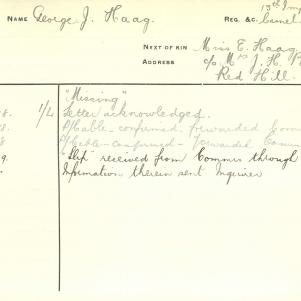 NAME George J. Haag.
REG. &C.
NEXT OF KIN Miss E. Haag
ADDRESS c/o Mrs J. H.
Red Hill.
"Missing"
8. 1/4 Letter acknowledged.
8. P/Cable-confirmed, forwarded
8 P/Cable-confirmed-forwarded
9. "Slip" received from Commrs through
Information therein sent Inquirer